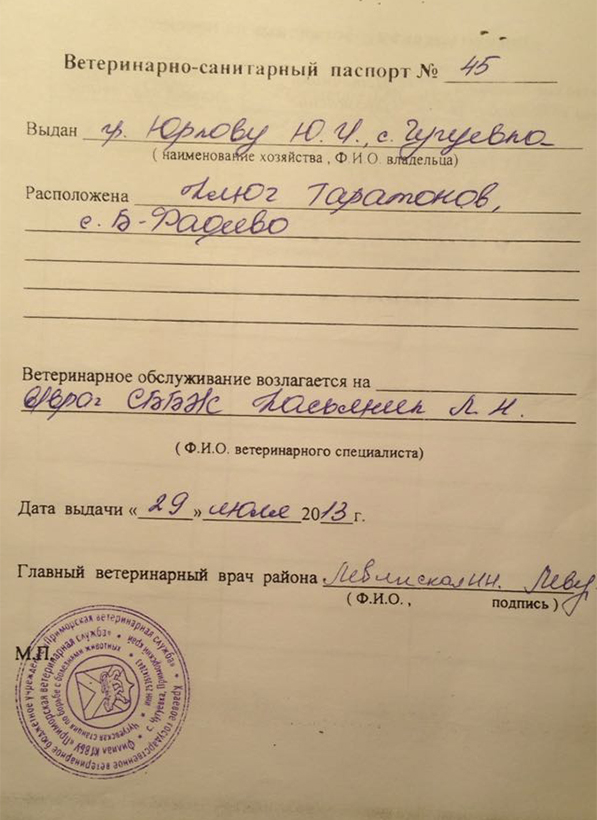 Ветеринарно-санитарный паспорт № 45
Выдан гр. Юрлову Ю.И., с. Чугуевка
( наименование хозяйства , Ф И О. владельца)
Расположена Ключ Таратонов,
с. Б-Фадеево
Ветеринарное обслуживание возлагается на
Врач СББЖ Н.
( Ф.И.О. ветеринарного специалиста)
Дата выдачи « 29 » июля 2013 г.
Главный ветеринарный врач района
( Ф.И.О. , подпись )
М.П.
Краевое государственное ветеринарное бюджетное учреждение «Приморская ветеринарная служба»
Филиал КГВБУ «Приморская ветеринарная служба»
Чугуевская станция по борьбе с болезнями животных